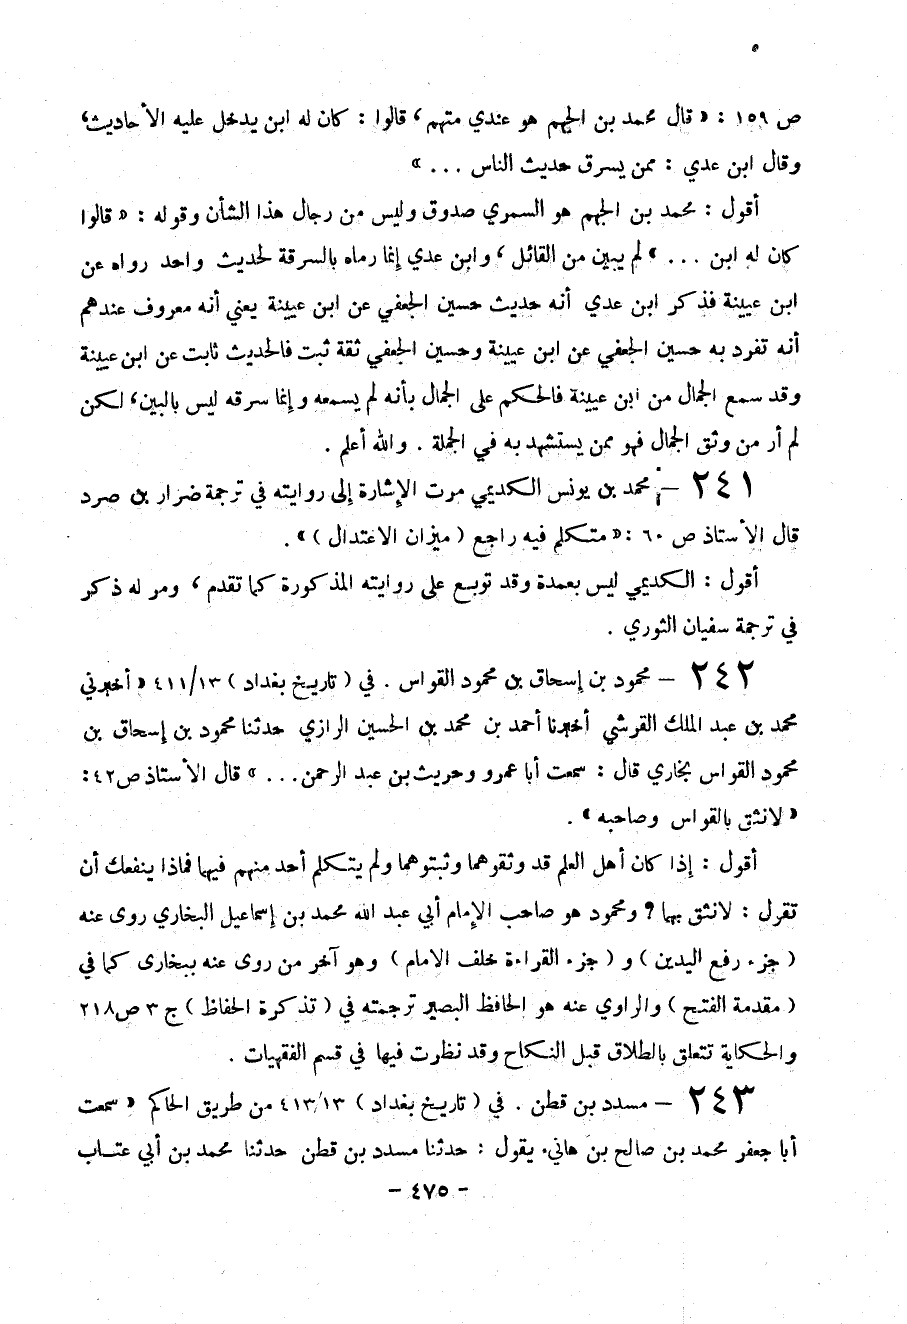 ص ١٥٩ : « قال محمد بن الجهم هو عندي متهم ، قالوا : كان له ابن يدخل عليه الأحاديث ،
وقال ابن عدي : ممن يسرق حديث الناس . . . »
أقول : محمد بن الجهم هو السمري صدوق وليس من رجال هذا الشأن وقوله : « قالوا
كان له ابن . . . » لم يبين من القائل ، وابن عدي إنما رماه بالسرقة لحديث واحد رواه عن
ابن عيينة فذكر ابن عدي أنه حديث حسين الجعفي عن ابن عيينة يعني أنه معروف عندهم
أنه تفرد به حسين الجعفي عن ابن عيينة وحسين الجعفي ثقة ثبت فالحديث ثابت عن ابن عيينة
وقد سمع الجمال من ابن عيينة فالحكم على الجمال بأنه لم يسمعه وإنما سرقه ليس بالبين ، لكن
لم أر من وثق الجمال فهو ممن يستشهد به في الجملة . والله أعلم .
٢٤١ – محمد بن يونس الكديمي مرت الإشارة إلى روايته في ترجمة ضرار بن صرد
قال الأستاذ ص ٦٠ : « متكلم فيه راجع ( ميزان الاعتدال ) » .
أقول : الكديمي ليس بعمدة وقد توبع على روايته المذكورة كما تقدم ، ومر له ذكر
في ترجمة سفيان الثوري .
٢٤٢ – محمود بن إسحاق بن محمود القواس . في ( تاريخ بغداد ) ٤١١/١٣ « أخبرني
محمد بن عبد الملك القرشي أخبرنا أحمد بن محمد بن الحسين الرازي حدثنا محمود بن إسحاق بن
محمود القواس بخاري قال : سمعت أبا عمرو وحريث بن عبد الرحمن . . . » قال الأستاذ ص ٤٢ :
« لانثق بالقواس وصاحبه » .
أقول : إذا كان أهل العلم قد وثقوهما وثبتوهما ولم يتكلم أحد منهم فيهما فماذا ينفعك أن
تقول : لانثق بهما ؟ ومحمود هو صاحب الإمام أبي عبد الله محمد بن إسماعيل البخاري روى عنه
( جزء رفع اليدين ) و ( جزء القراءة خلف الامام ) وهو آخر من روى عنه ببخارى كما في
( مقدمة الفتح ) والراوي عنه هو الحافظ البصير ترجمته في ( تذكرة الحفاظ ) ج ٣ ص ٢١٨
والحكاية تتعلق بالطلاق قبل النكاح وقد نظرت فيها في قسم الفقهيات .
٢٤٣ – مسدد بن قطن . في ( تاريخ بغداد ) ٤١٣/١٣ من طريق الحاكم « سمعت
أبا جعفر محمد بن صالح بن هانيء يقول : حدثنا مسدد بن قطن حدثنا محمد بن أبي عتاب
– ٤٧٥ –